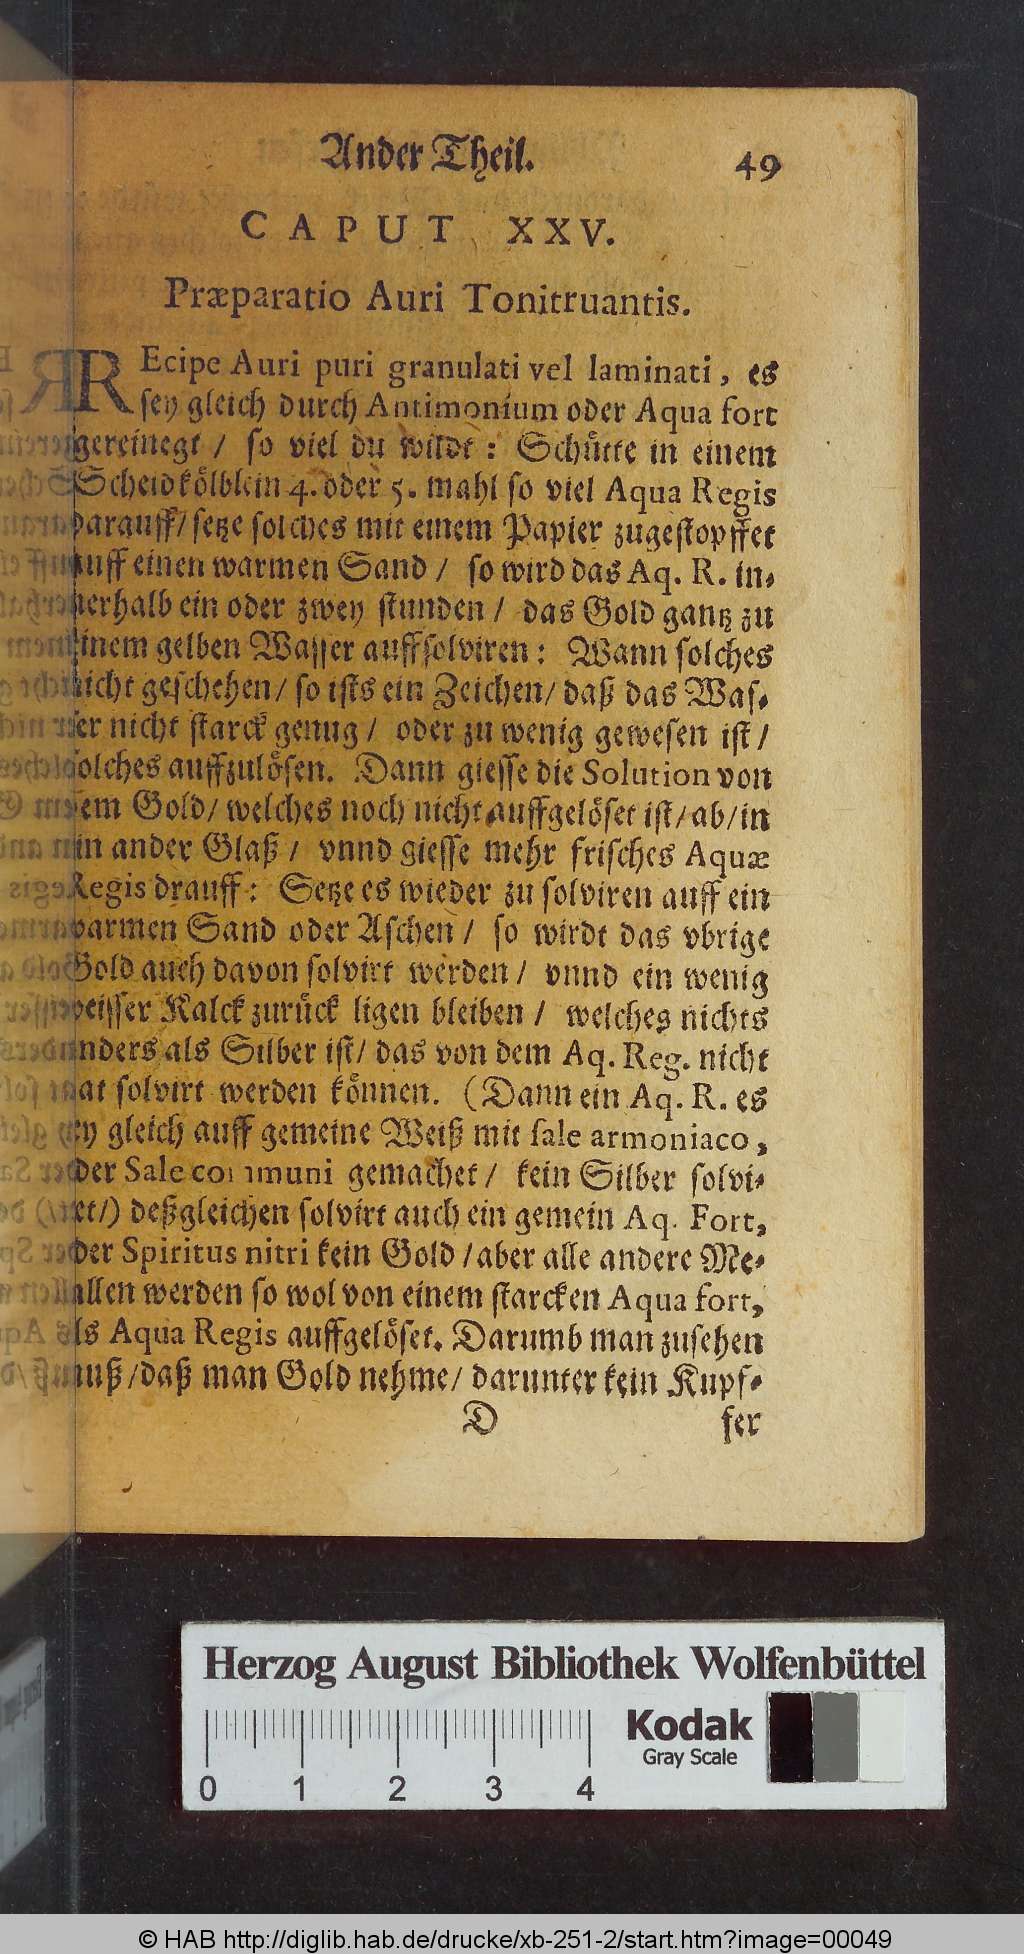 Ander Theil. 49
CAPUT XXV.
Præparatio Auri Tonitruantis.
REcipe Auri puri granulati vel laminati, es
sey gleich durch Antimonium oder Aqua fort
gereinegt / so viel du wildt: Schütte in einem
Scheidkölblein 4. oder 5. mahl so viel Aqua Regis
darauff/ setze solches mit einem Papier zugestopffet
auff einen warmen Sand / so wird das Aq. R. in-
nerhalb ein oder zwey stunden / das Gold gantz zu
einem gelben Wasser auffsolviren: Wann solches
nicht geschehen/ so ists ein Zeichen/ daß das Was-
ser nicht starck genug / oder zu wenig gewesen ist /
solches auffzulösen. Dann giesse die Solution von
dem Gold/ welches noch nicht auffgelöset ist/ ab/ in
ein ander Glaß / vnnd giesse mehr frisches Aquæ
Regis drauff: Setze es wieder zu solviren auff ein
warmen Sand oder Aschen / so wirdt das vbrige
Gold auch davon solvirt werden / vnnd ein wenig
weisser Kalck zurück ligen bleiben / welches nichts
anders als Silber ist/ das von dem Aq. Reg. nicht
hat solvirt werden können. (Dann ein Aq. R. es
sey gleich auff gemeine Weiß mit sale armoniaco,
oder Sale communi gemachet / kein Silber solvi-
ret/) deßgleichen solvirt auch ein gemein Aq. Fort,
oder Spiritus nitri kein Gold / aber alle andere Me-
tallen werden so wol von einem starcken Aqua fort,
als Aqua Regis auffgelöset. Darumb man zusehen
muß / daß man Gold nehme/ darunter kein Kupf-
D fer
Herzog August Bibliothek Wolfenbüttel
Kodak
Gray Scale
0 1 2 3 4
© HAB http://diglib.hab.de/drucke/xb-251-2/start.htm?image=00049